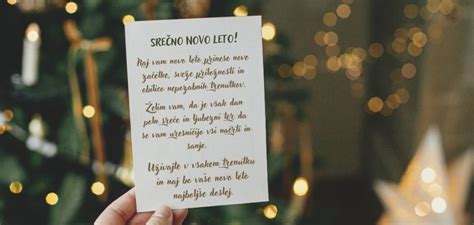 SREČNO NOVO LETO!
Naj vam novo leto prinese nove
začetke, sveže priložnosti in
obilico nepozabnih trenutkov.
Želim vam, da je vsak dan
poln sreče in ljubezni ter da
se vam uresničijo vsi načrti in
sanje.
Uživajte v vsakem trenutku
in naj bo vaše novo leto
najboljše doslej.